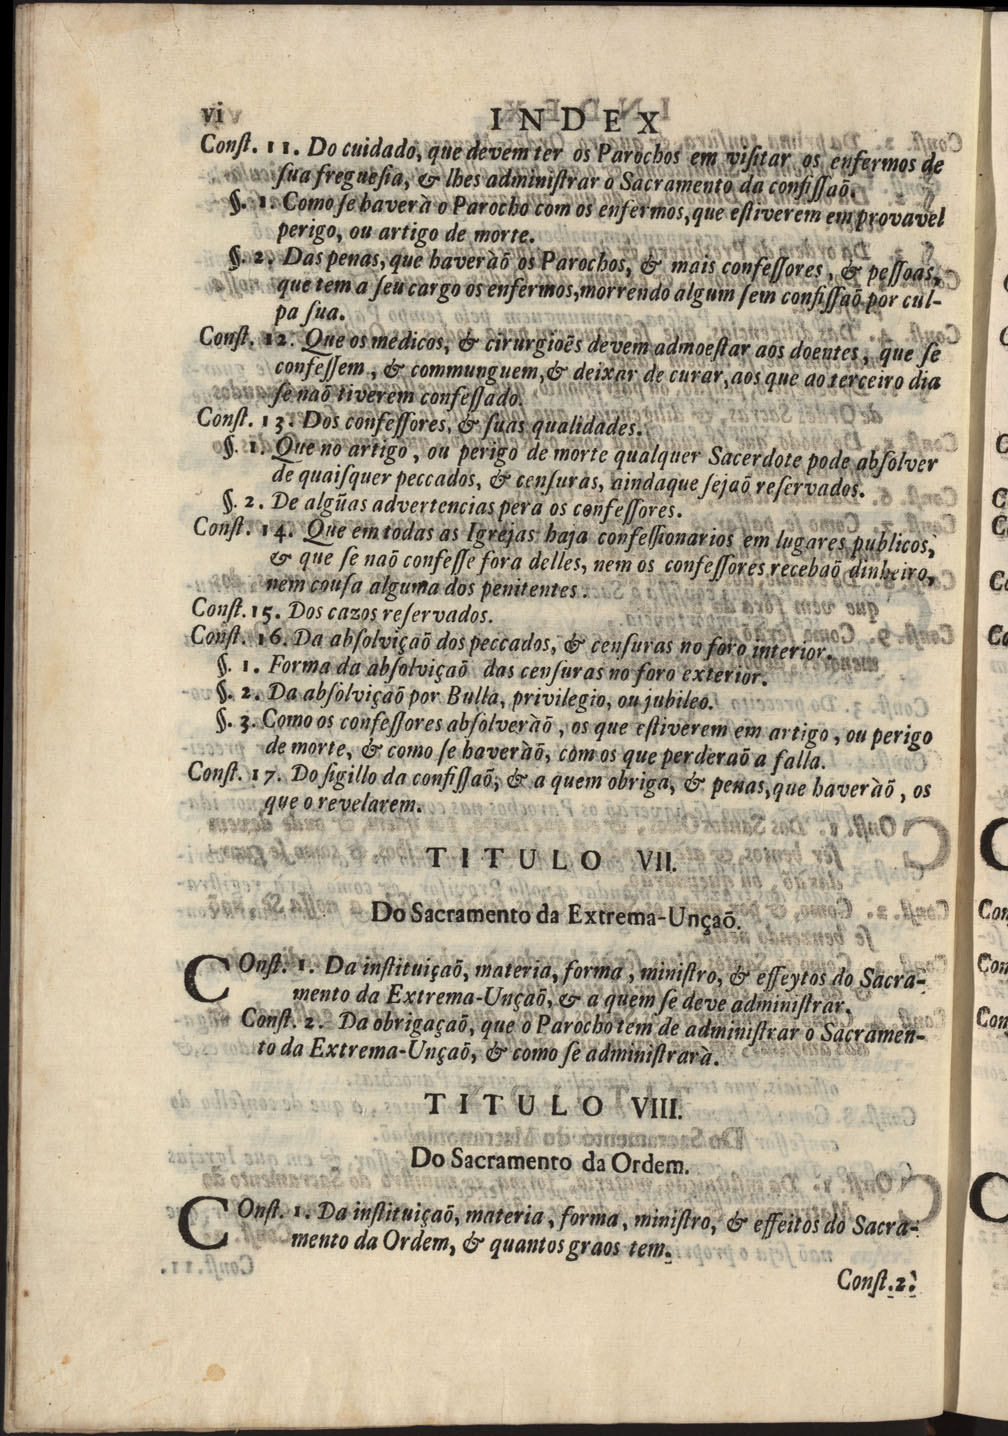 vi
INDEX
Conſt. 11. Do cuidado, que devem ter os Parochos em viſitar os enfermos de
ſua freguesia, & lhes adminiſtrar o Sacramento da confiſſaõ.
§. 1. Como ſe haverà o Parocho com os enfermos, que eſtiverem em provavel
perigo, ou artigo de morte.
§. 2. Das penas, que haveràõ os Parochos, & mais confeſſores, & peſſoas,
que tem a ſeu cargo os enfermos, morrendo algum ſem confiſſaõ por cul-
pa ſua.
Conſt. 12. Que os medicos, & cirurgioẽs devem admoeſtar aos doentes, que ſe
confeſſem, & communguem, & deixar de curar, aos que ao terceiro dia
ſe naõ tiverem confeſſado.
Conſt. 13. Dos confeſſores, & ſuas qualidades.
§. 1. Que no artigo, ou perigo de morte qualquer Sacerdote pode abſolver
de quaiſquer peccados, & cenſuras, aindaque ſejaõ reſervados.
§. 2. De algũas advertencias pera os confeſſores.
Conſt. 14. Que em todas as Igrejas haja confeſſionarios em lugares publicos,
& que ſe naõ confeſſe fora delles, nem os confeſſores recebaõ dinheiro,
nem couſa alguma dos penitentes.
Conſt. 15. Dos cazos reſervados.
Conſt. 16. Da abſolviçaõ dos peccados, & cenſuras no foro interior.
§. 1. Forma da abſolviçaõ das cenſuras no foro exterior.
§. 2. Da abſolviçaõ por Bulla, privilegio, ou jubileo.
§. 3. Como os confeſſores abſolveràõ, os que eſtiverem em artigo, ou perigo
de morte, & como ſe haveràõ, com os que perderaõ a falla.
Conſt. 17. Do ſigillo da confiſſaõ, & a quem obriga, & penas, que haveràõ, os
que o revelarem.
TITULO VII.
Do Sacramento da Extrema-Unçaõ.
COnſt. 1. Da inſtituiçaõ, materia, forma, miniſtro, & effeytos do Sacra-
mento da Extrema-Unçaõ, & a quem ſe deve adminiſtrar.
Conſt. 2. Da obrigaçaõ, que o Parocho tem de adminiſtrar o Sacramen-
to da Extrema-Unçaõ, & como ſe adminiſtrarà.
TITULO VIII.
Do Sacramento da Ordem.
COnſt. 1. Da inſtituiçaõ, materia, forma, miniſtro, & effeitos do Sacra-
mento da Ordem, & quantos graos tem.
Conſt. 2.